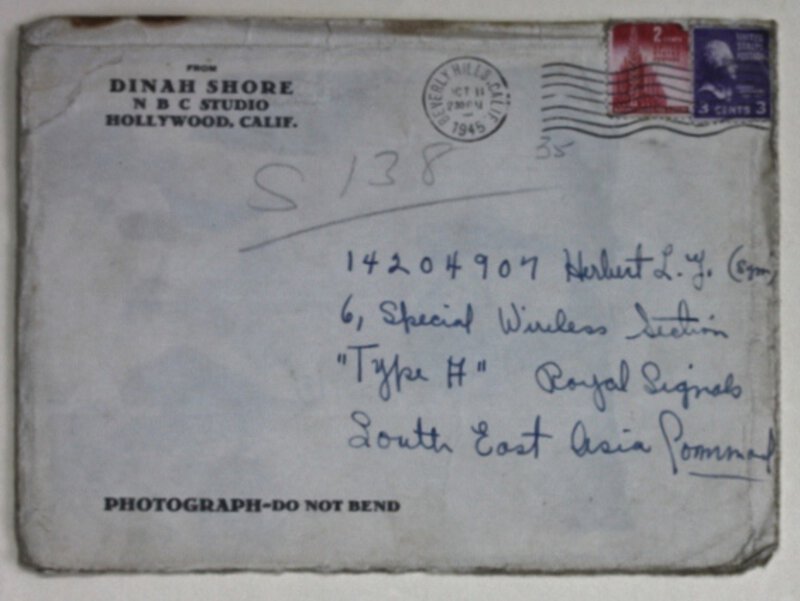 FROM
DINAH SHORE
N B C STUDIO
HOLLYWOOD, CALIF.
BEVERLY HILLS, CALIF.
OCT 11
2 PM
1945
2 CENTS
UNITED
STATES
POSTAGE
3 CENTS 3
35
S 138
14204907 Herbert L. Y. (Sgm)
6, Special Wireless Section
"Type H" Royal Signals
South East Asia Command
PHOTOGRAPH-DO NOT BEND